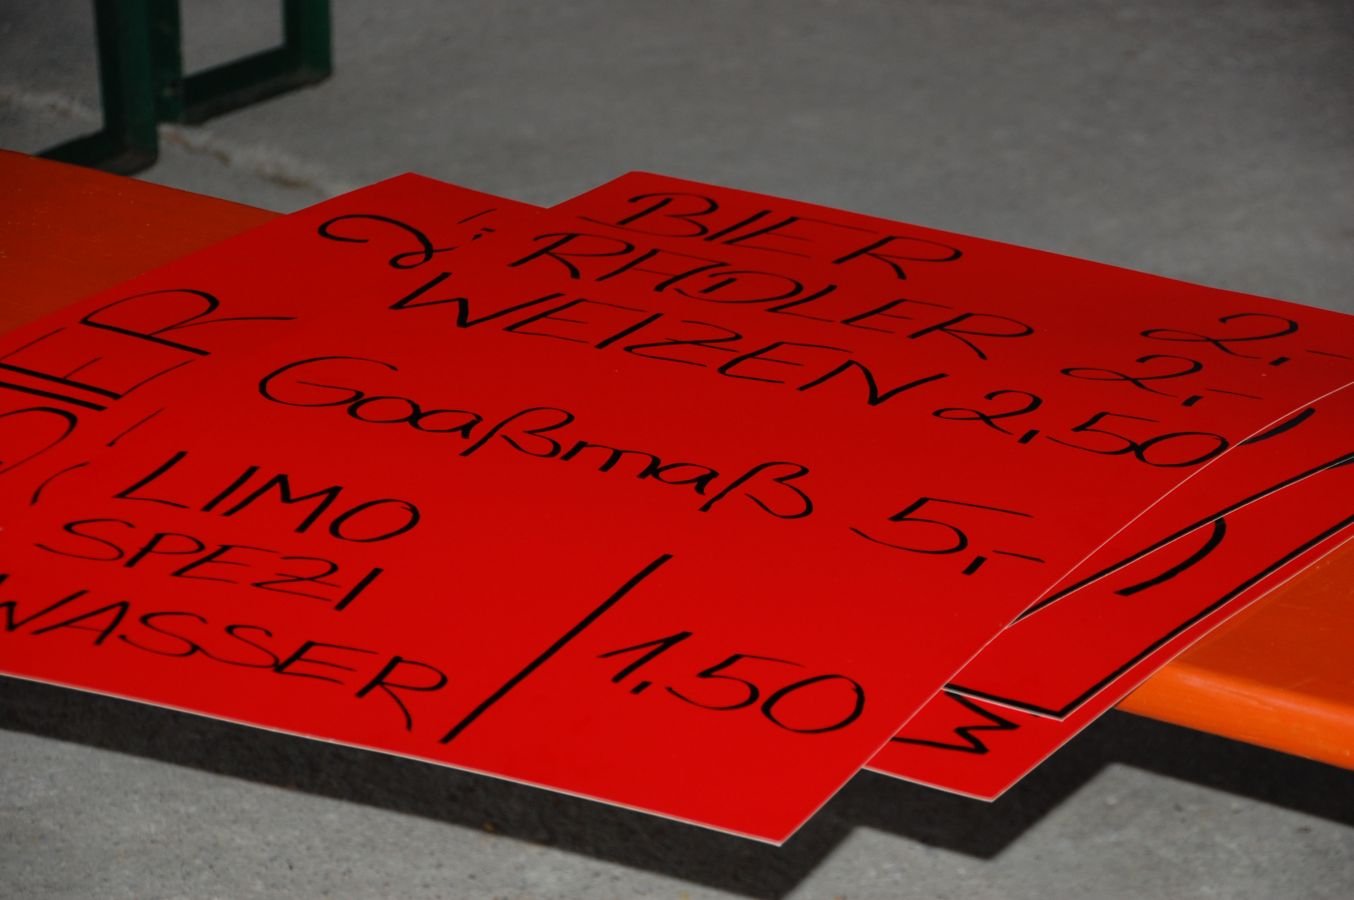 BIER 2,-
RADLER 2,-
WEIZEN 2,50
Goaßmaß 5,-
LIMO
SPEZI
WASSER / 1,50